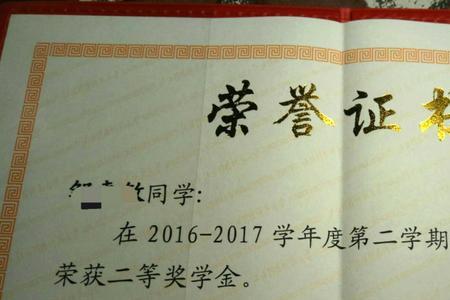 荣誉证
同学:
在2016-2017学年度第二学期
荣获二等奖学金。